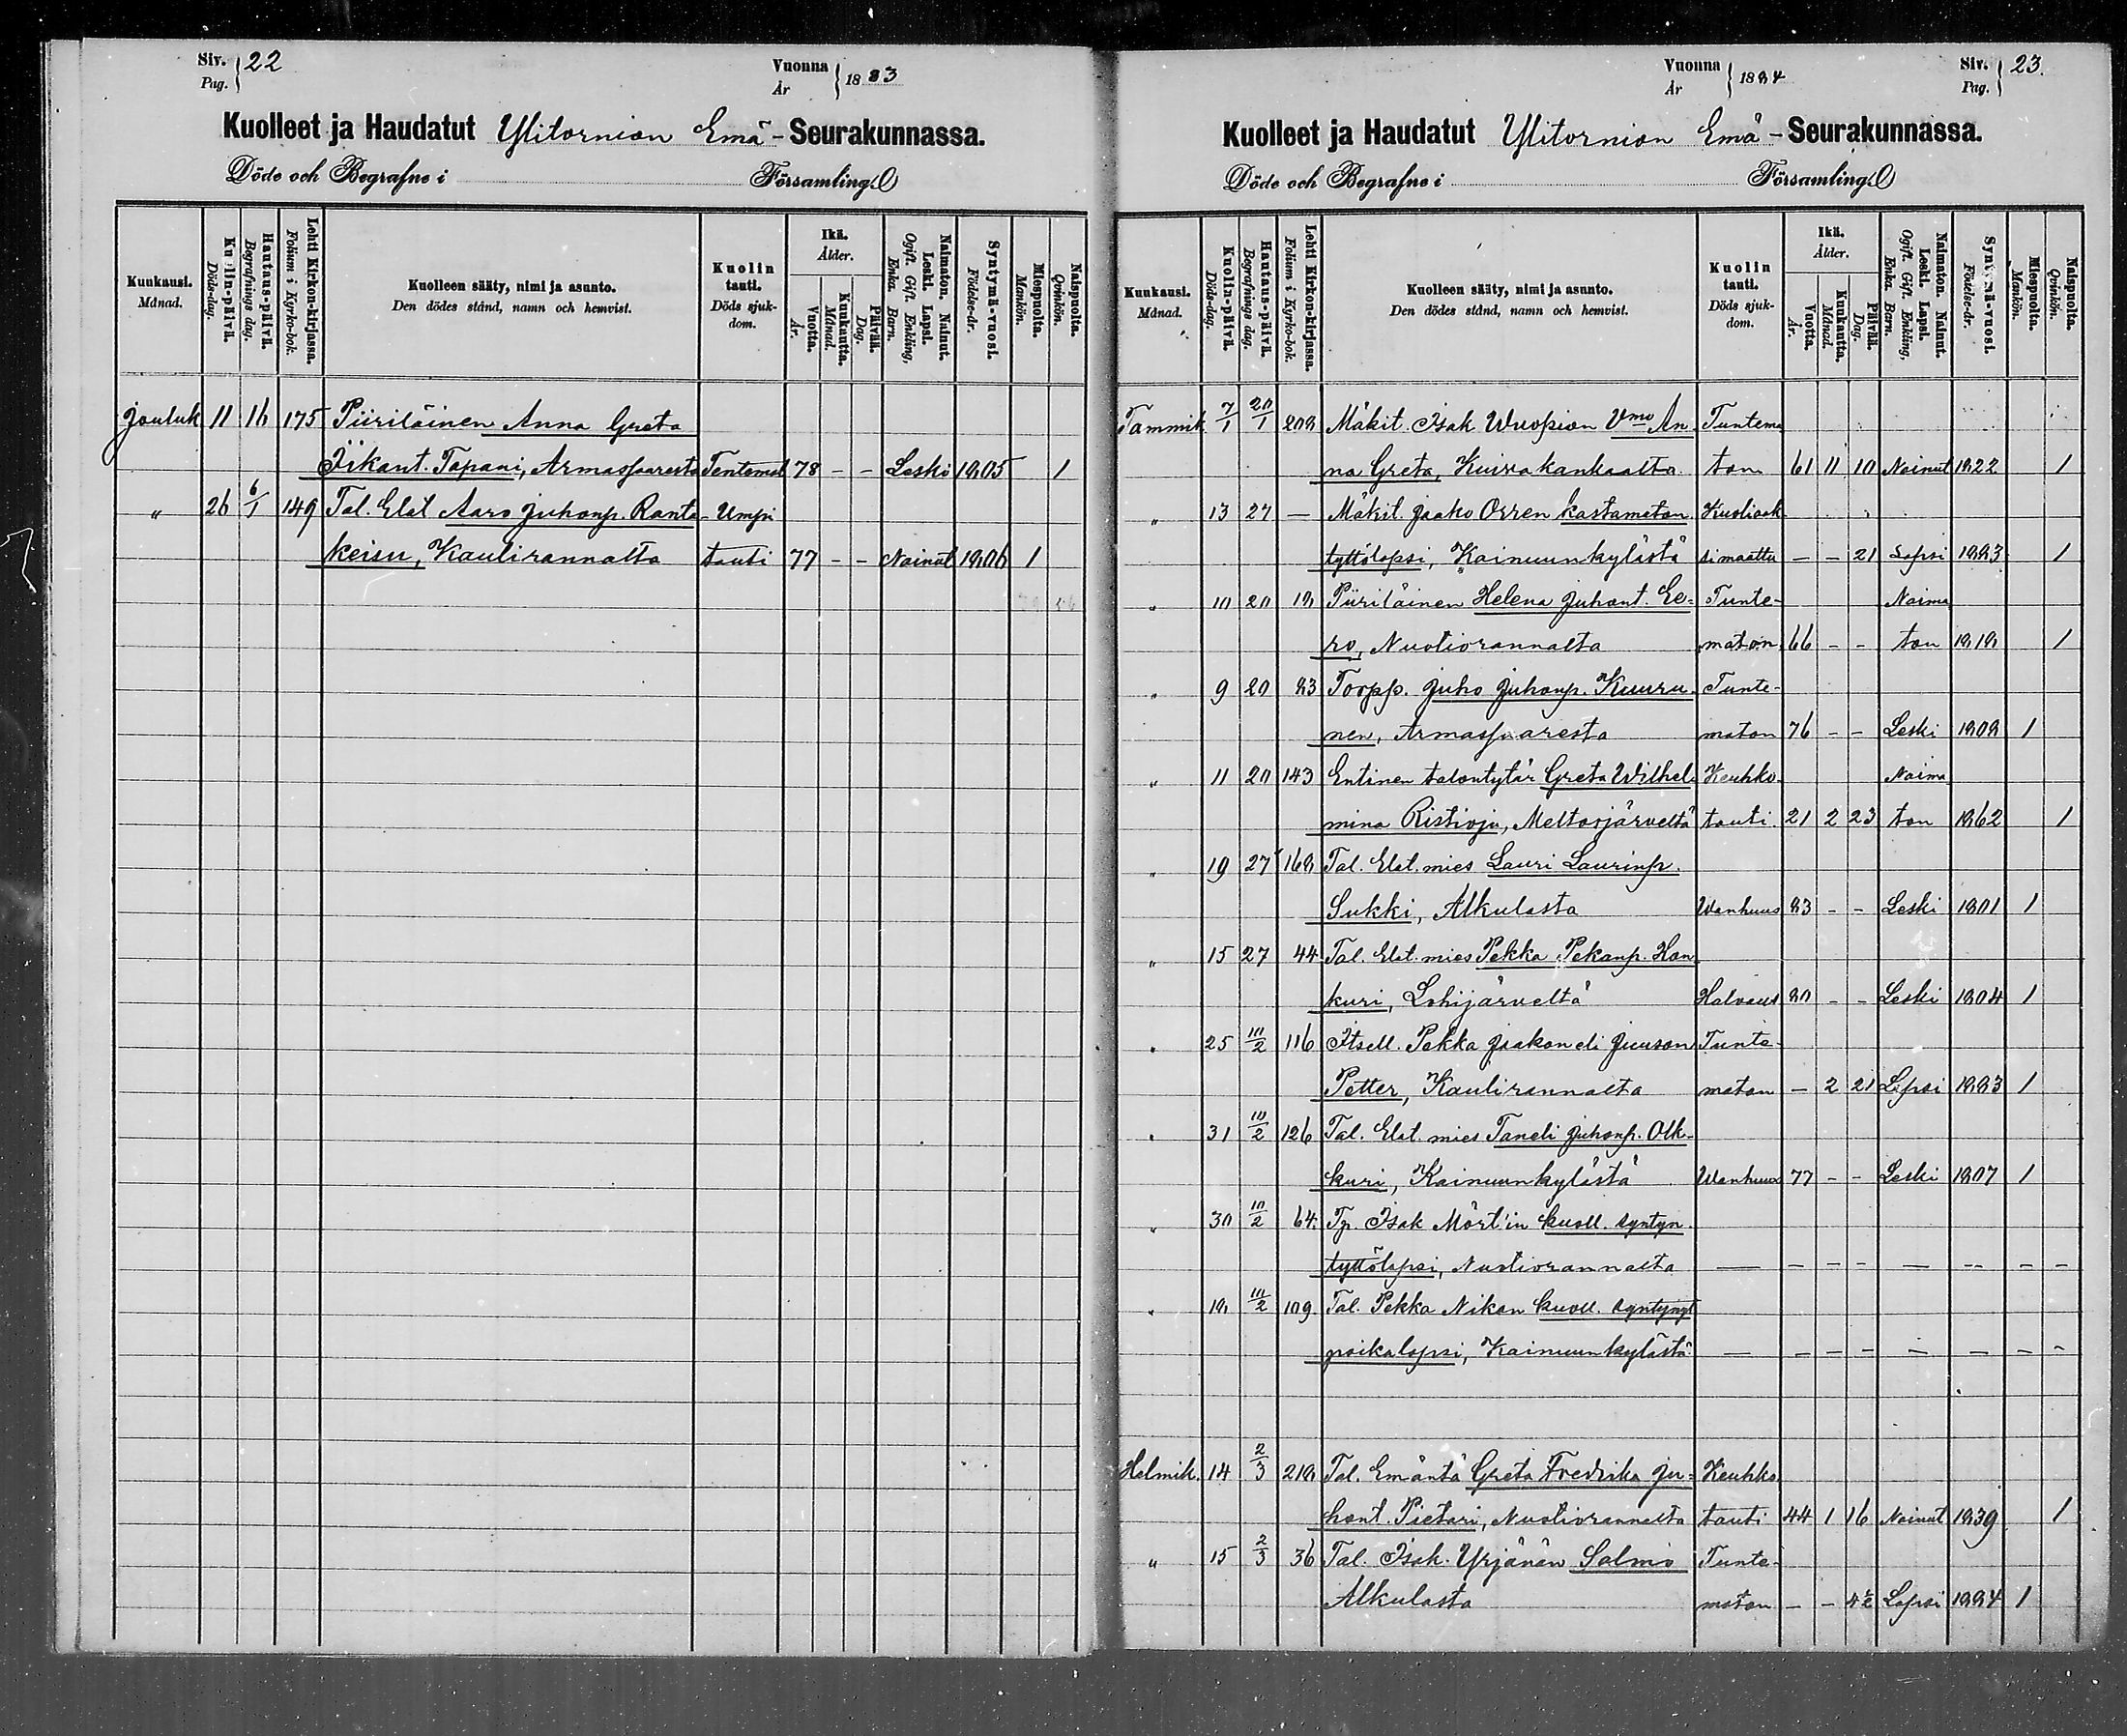 Siv. 22
Pag.
Vuonna 1883
År
Kuolleet ja Haudatut Ylitornion Emä-Seurakunnassa.
Döde och Begrafne i Församling
Kuukausi. Månad.
Kuolin-päivä. Döds-dag.
Hautaus-päivä. Begrafnings dag.
Lehti Kirkon-kirjassa. Folium i Kyrko-bok.
Kuolleen sääty, nimi ja asunto.
Den dödes stånd, namn och hemvist.
Kuolin tauti. Döds sjuk-dom.
Ikä. Ålder.
Vuotta. År.
Kuukautta. Månad.
Päivää. Dag.
Naimaton. Nainut. Leski. Lapsi. Ogift. Gift. Enkling, Enka. Barn.
Syntymä-vuosi. Födelse-år.
Miespuolta. Mankön.
Naispuolta. Qvinkön.
Jouluk 11 16 175 Piiriläinen Anna Greta
Iikant. Tapani, Armassaaresta Tuntemat 78 - - Leski 1805 1
" 26 6/1 149 Tal. Elät Aaro Juhonp. Ranta- Umpi
keisu, Kaulirannalta tauti 77 - - Nainut 1806 1
Siv. 23.
Pag.
Vuonna 1884
År
Kuolleet ja Haudatut Ylitornion Emä-Seurakunnassa.
Döde och Begrafne i Församling
Kuukausi. Månad.
Kuolin-päivä. Döds-dag.
Hautaus-päivä. Begrafnings dag.
Lehti Kirkon-kirjassa. Folium i Kyrko-bok.
Kuolleen sääty, nimi ja asunto.
Den dödes stånd, namn och hemvist.
Kuolin tauti. Döds sjuk-dom.
Ikä. Ålder.
Vuotta. År.
Kuukautta. Månad.
Päivää. Dag.
Naimaton. Nainut. Leski. Lapsi. Ogift. Gift. Enkling, Enka. Barn.
Syntymä-vuosi. Födelse-år.
Miespuolta. Mankön.
Naispuolta. Qvinkön.
Tammik 7/1 20/1 208 Mäkit. Isak Wuopion Vmo An Tuntema
na Greta, Kuivakankaalta ton 61 11 10 Nainut 1822 1
" 13 27 — Mäkit. Jaako Orren kastamaton Kuoliaak
tyttölapsi, Kainuunkylästä si maattu — - 21 Lapsi 1883 1
" 10 20 18 Piiriläinen Helena Juhont. Ee- Tunte- Naima
ro, Nuotiorannalta maton 66 - - ton 1818 1
" 9 20 83 Torpp. Juho Juhonp. Kuuru- Tunte-
nen, Armassaaresta maton 76 - - Leski 1808 1
" 11 20 143 Entinen talontytär Greta Wilhel- Keuhko- Naima
mina Ristioja, Meltosjärveltä tauti 21 2 23 ton 1862 1
" 19 27 168 Tal. Elät. mies Lauri Laurinp.
Sukki, Alkulasta Wanhuus 83 - - Leski 1801 1
" 15 27 44 Tal. Elät. mies Pekka Pekanp. Han
kuri, Lohijärveltä Halvaus 80 - - Leski 1804 1
" 25 10/2 116 Itsell. Pekka Jaakon eli Juuson Tunte-
Petter, Kaulirannalta maton — 2 21 Lapsi 1883 1
" 31 10/2 126 Tal. Elät. mies Taneli Juhonp. Olk-
kuri, Kainuunkylästä Wanhuus 77 - - Leski 1807 1
" 30 10/2 64 Ty. Isak Mört'in kuoll. syntyn.
tyttölapsi, Nuotiorannalta — — - - — -- - -
" 18 10/2 109 Tal. Pekka Nikan kuoll. syntynyt
poikalapsi, Kainuunkylästä — — — - — — — -
Helmik. 14 2/3 218 Tal. Emäntä Greta Fredrika Ju- Keuhko
hont. Pietari, Nuotiorannalta tauti 44 1 16 Nainut 1839 1
" 15 2/3 36 Tal. Isak Yrjänän Salmo Tunte-
Alkulasta maton - - Lapsi 1884 1